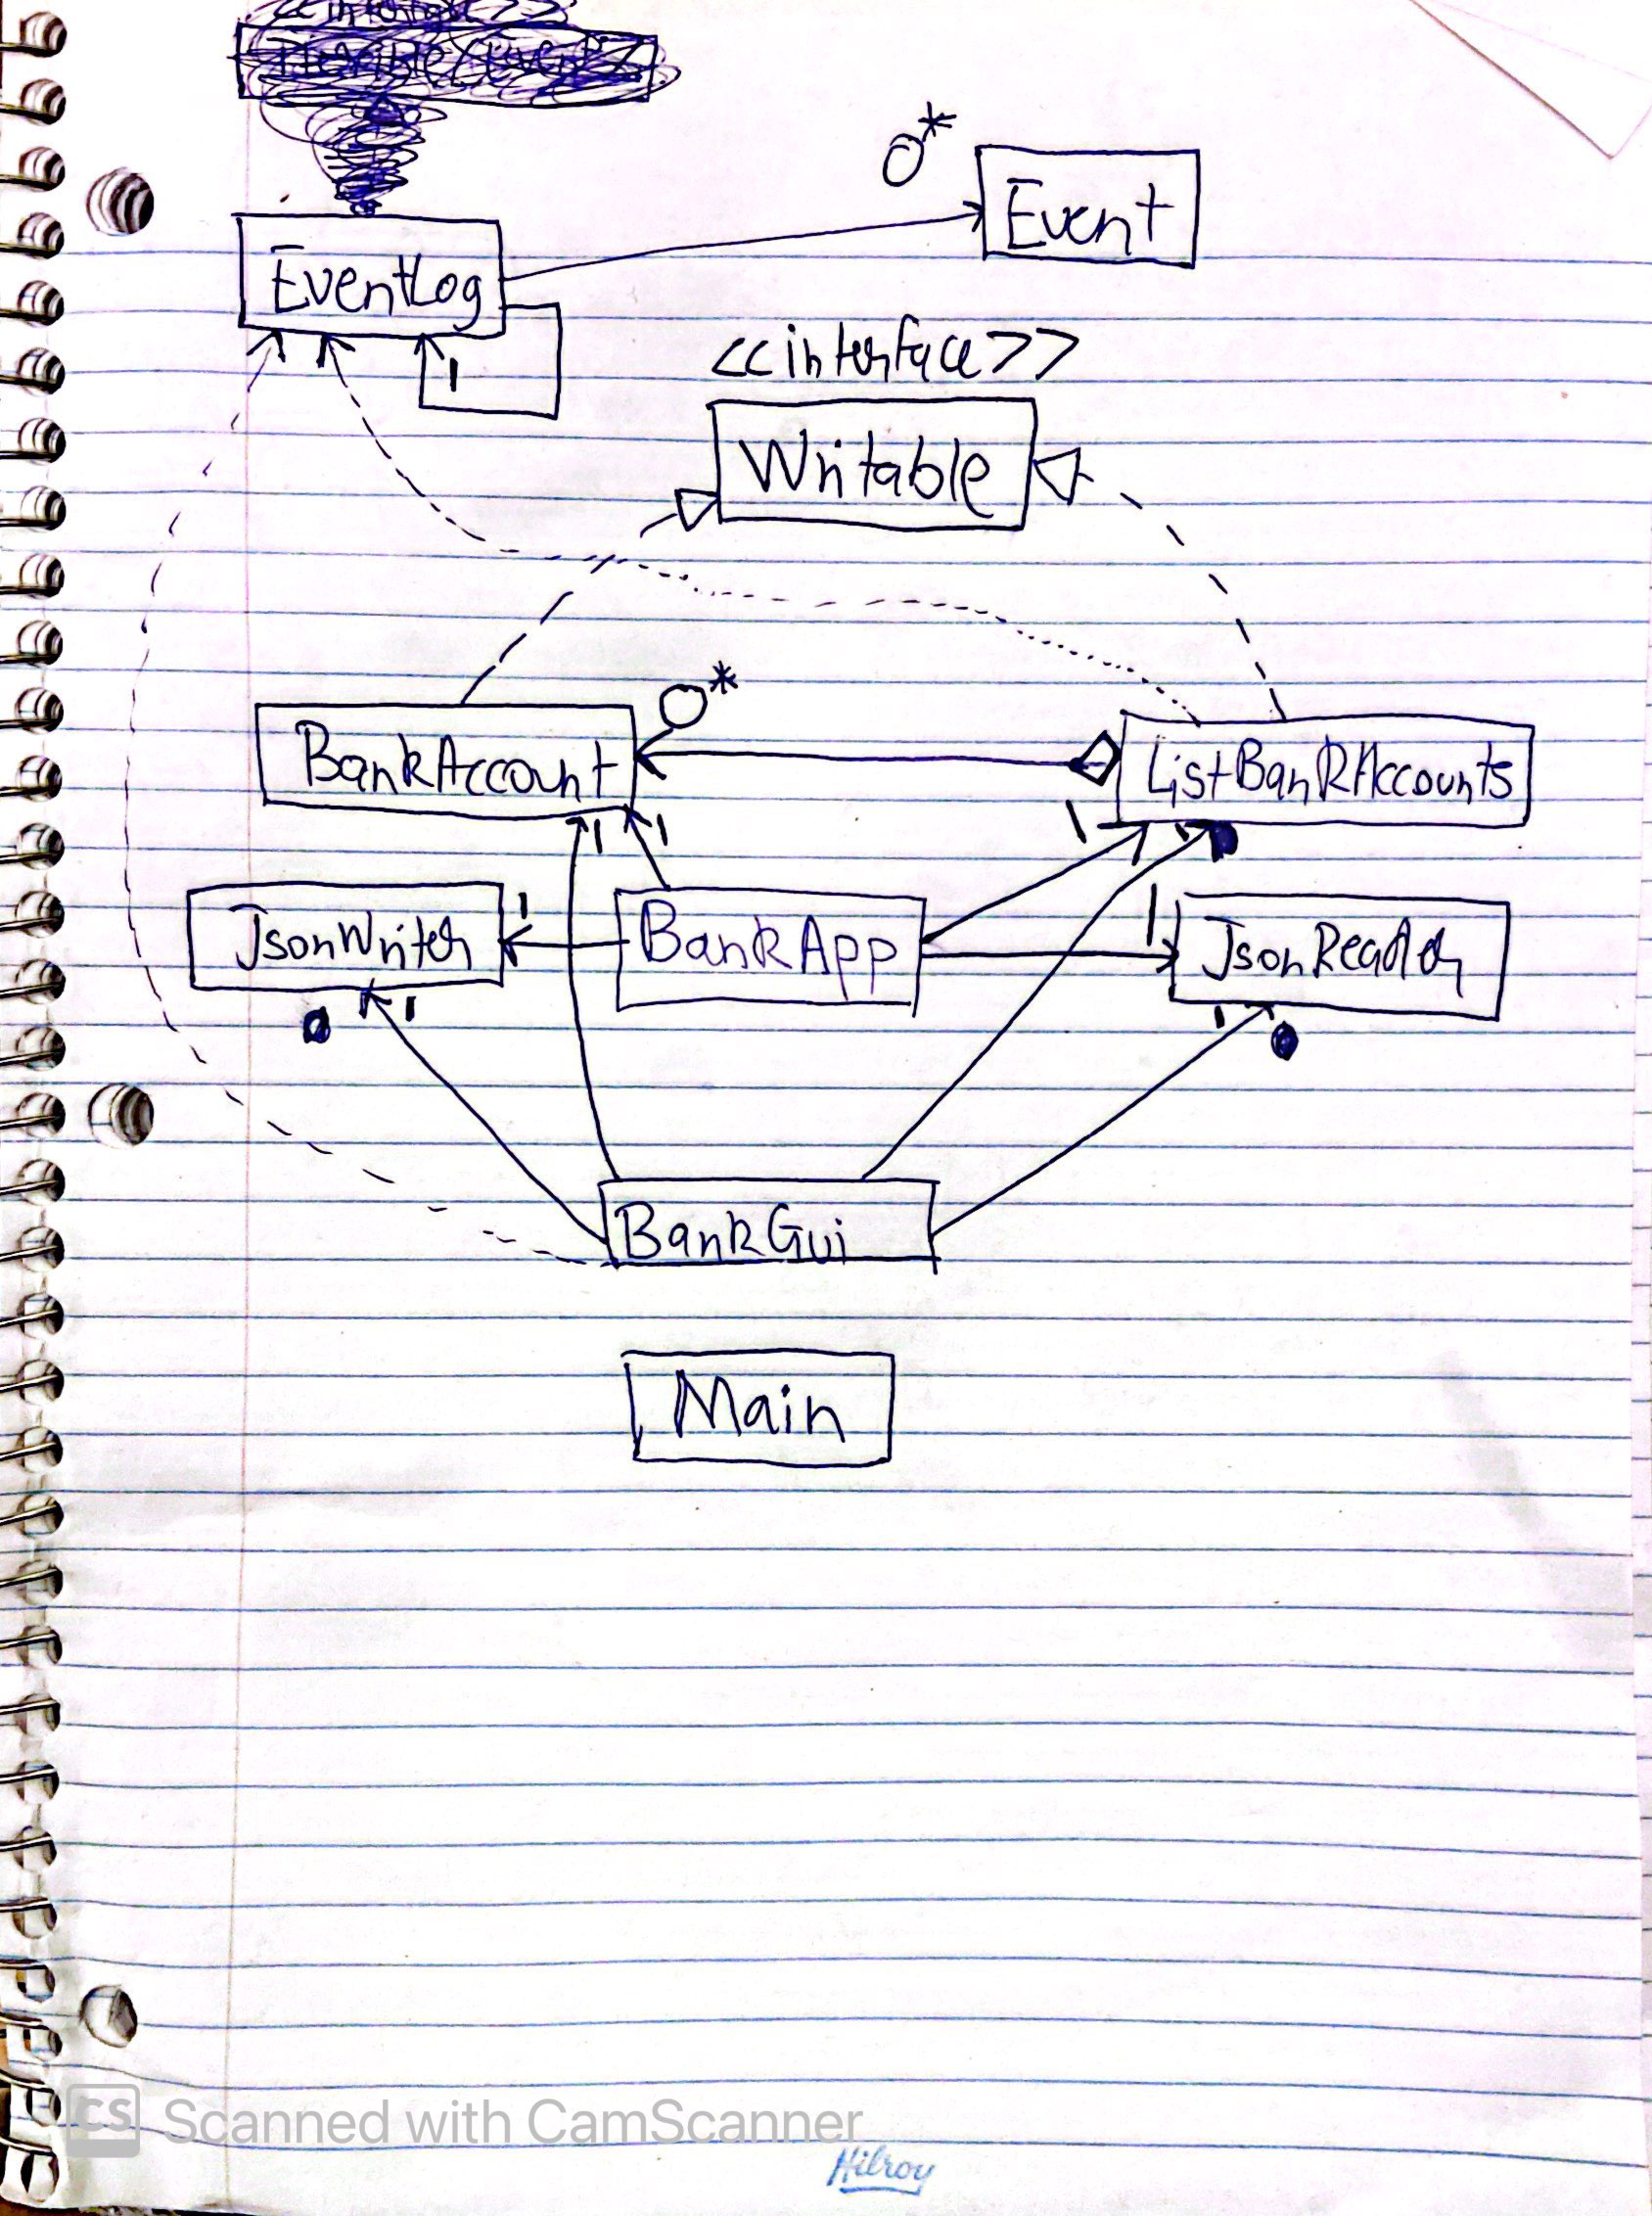 <<interface>>
0*
Event
EventLog
1
<<interface>>
Writable
0*
BankAccount
ListBankAccounts
1 1 1 1
JsonWriter
1
BankApp
1
JsonReader
1
1
BankGui
Main
CS Scanned with CamScanner
Hilroy